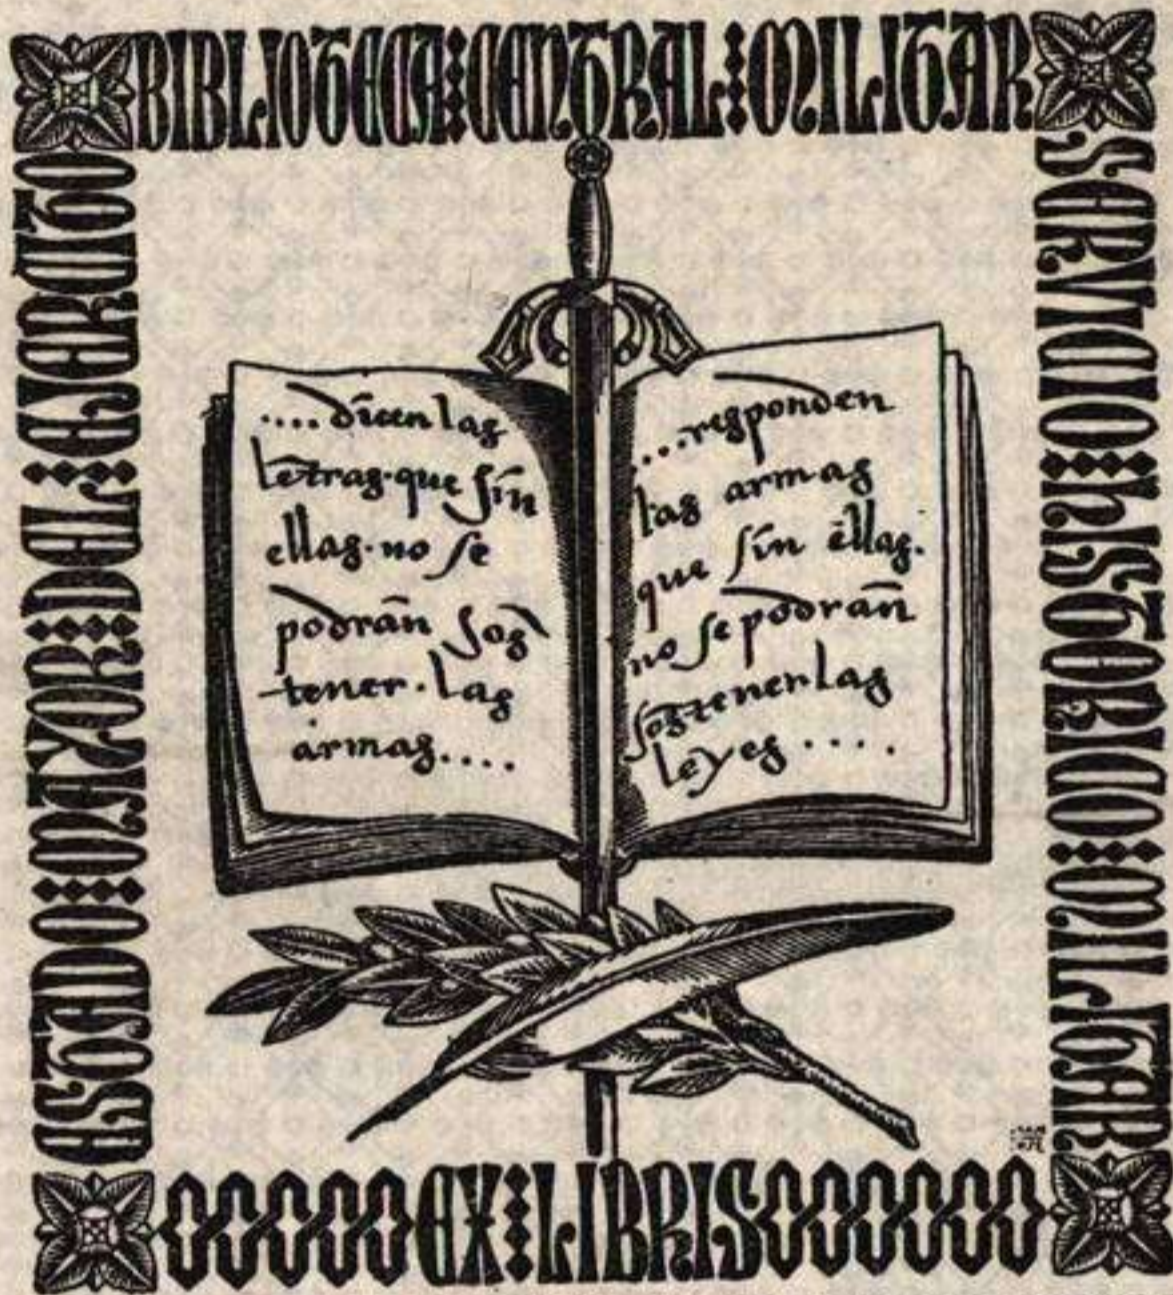 BIBLIOTECA CENTRAL MILITAR
SERVICIO HISTORICO MILITAR
ESTADO MAYOR DEL EJERCITO
....dicen las
letras·que sin
ellas·no se
podrán sos
tener·las
armas....
....responden
las armas
que sin ellas·
no se podrán
sostener las
leyes ....
EX LIBRIS